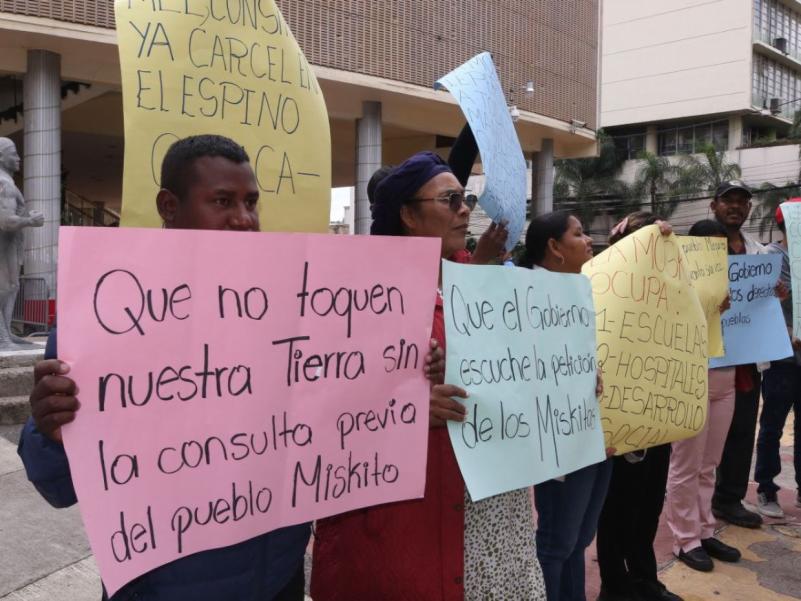 YA CARCEL EN
EL ESPINO
Que no toquen
nuestra Tierra sin
la consulta previa
del pueblo Miskito
Que el Gobierno
escuche la petición
de los Miskitos
OCUPA:
1-ESCUELAS
2-HOSPITALES
3-DESARROLLO
SOCIAL
Gobierno
los derechos
pueblos